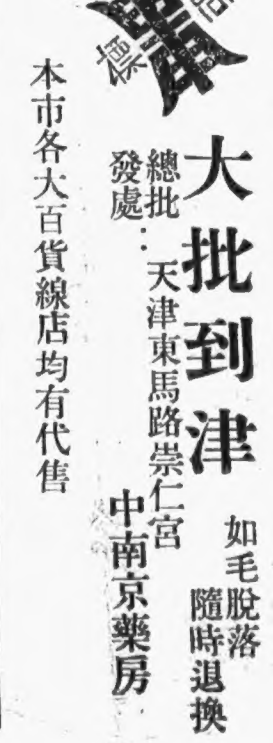 大批到津
如毛脫落
隨時退換
總批
發處:
天津東馬路崇仁宮
中南京藥房
本市各大百貨線店均有代售